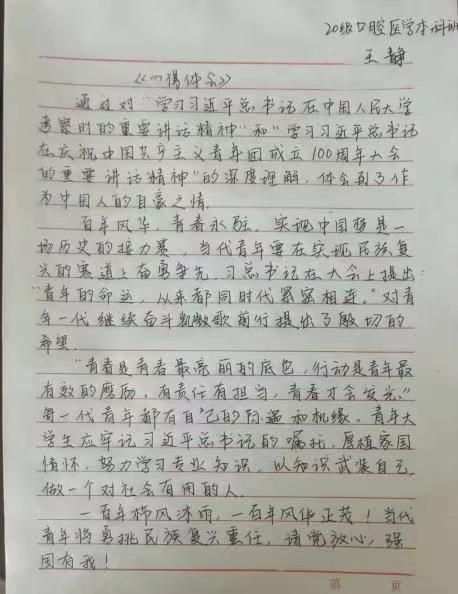 20级口腔医学本科班
王静
《心得体会》
通过对“学习习近平总书记在中国人民大学
考察时的重要讲话精神”和“学习习近平总书记
在庆祝中国共产主义青年团成立100周年大会
的重要讲话精神”的深度理解，体会到了作
为中国人的自豪之情。
百年风华，青春永驻，实现中国梦是一
场历史的接力赛，当代青年要在实现民族复
兴的赛道上奋勇争先。习总书记在大会上提出：
“青年的命运，从来都同时代紧密相连。”对青
年一代继续奋斗凯歌前行提出了殷切的
希望。
“青春是青春最亮丽的底色，行动是青年最
有效的磨砺。有责任有担当，青春才会发光。”
每一代青年都有自己的际遇和机缘。青年大
学生应牢记习近平总书记的嘱托，厚植家国
情怀，努力学习专业知识，以知识武装自己，
做一个对社会有用的人。
一百年栉风沐雨，一百年风华正茂！当代
青年将勇挑民族复兴重任，请党放心，强
国有我！
第 页